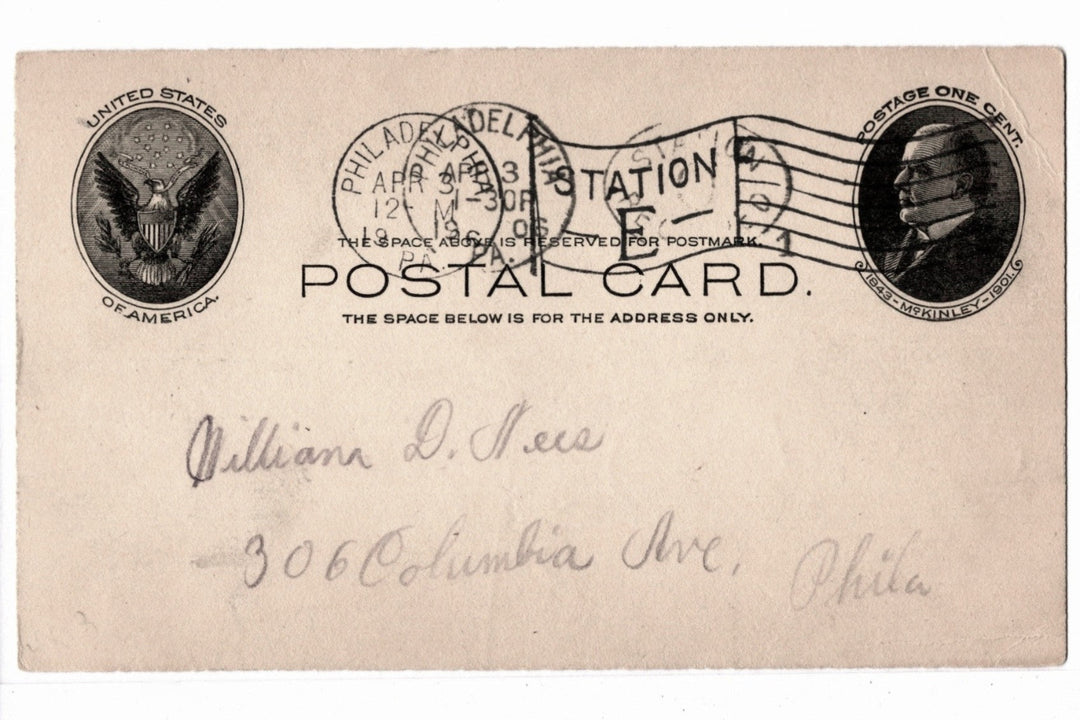 UNITED STATES
OF AMERICA.
PHILADELPHIA
APR 3
12- M
19
PA.
PHILADELPHIA
APR 3
1-30P
1906
PA.
STATION
E-
STATION
1
POSTAGE ONE CENT.
1843-McKINLEY-1901.
THE SPACE ABOVE IS RESERVED FOR POSTMARK.
POSTAL CARD.
THE SPACE BELOW IS FOR THE ADDRESS ONLY.
William D. Nees
306 Columbia Ave, Phila